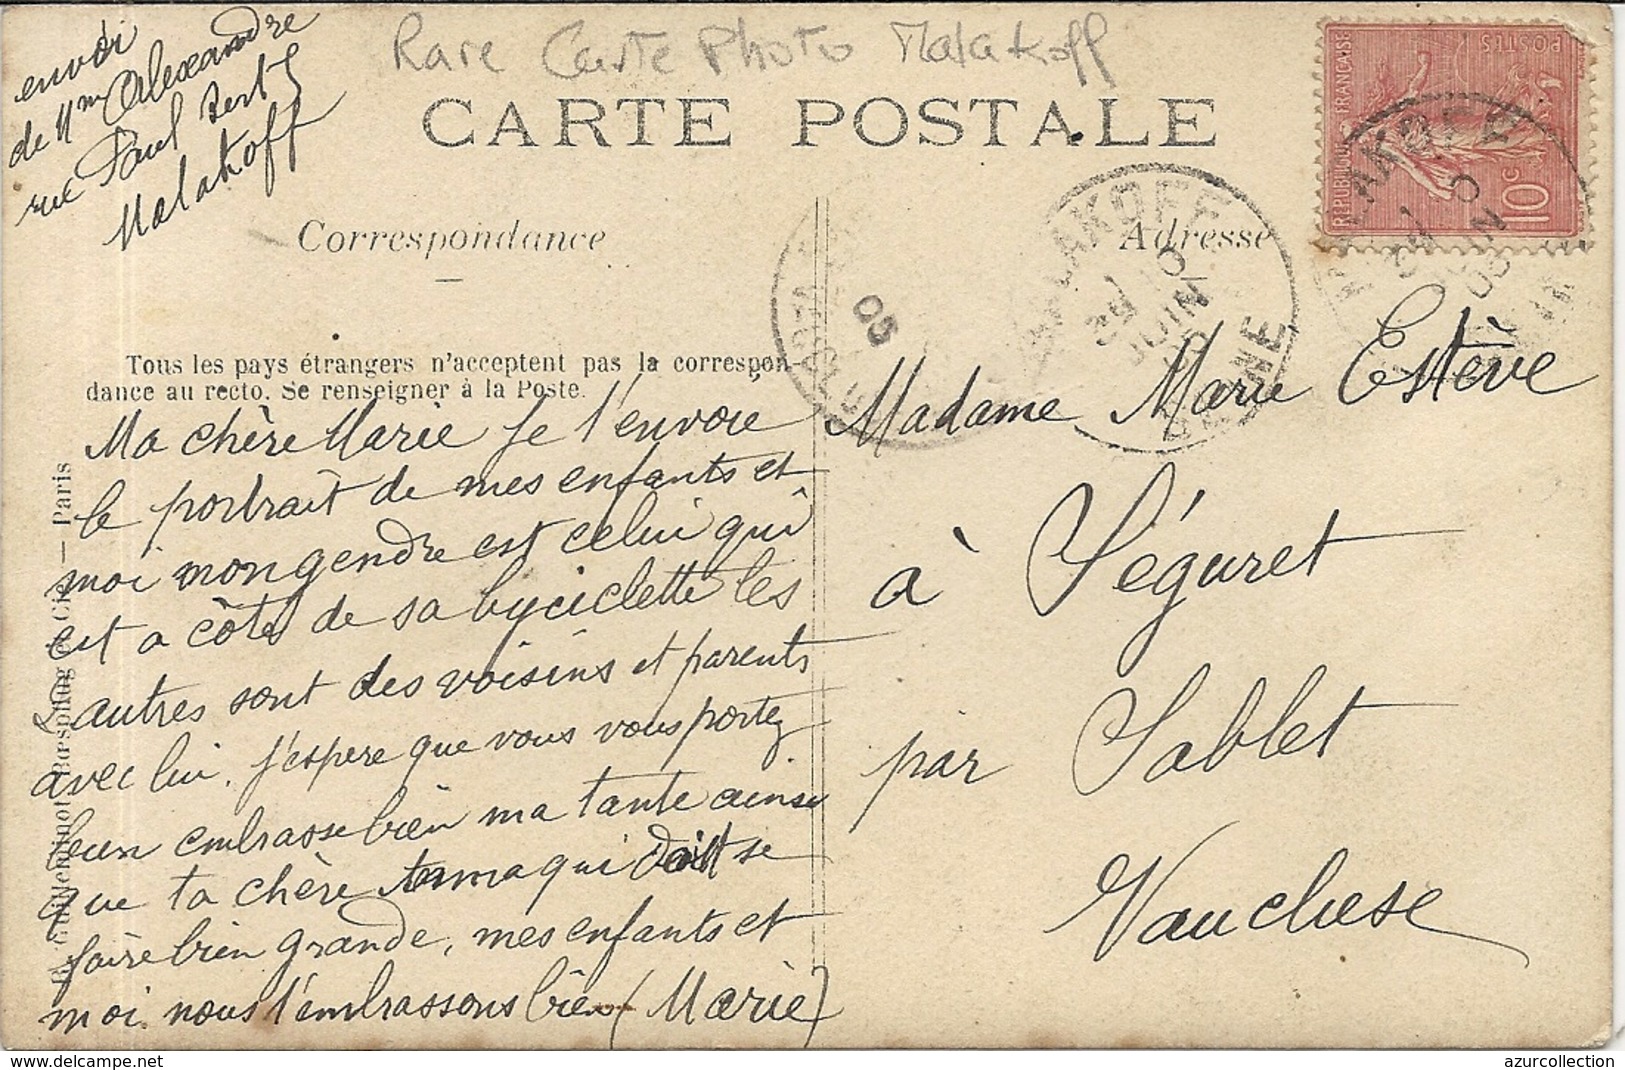 envoi
de Mme Alexandre
rue Paul Bert
Malakoff
Rare Carte Photo Malakoff
CARTE POSTALE
Correspondance
Adresse
Tous les pays étrangers n'acceptent pas la correspon-
dance au recto. Se renseigner à la Poste.
Ma chère Marie je t'envoie
le portrait de mes enfants et
moi mon gendre est celui qui
est a côté de sa byciclette les
autres sont des voisins et parents
avec lui. j'espere que vous vous portez
bien embrasse bien ma tante ainsi
que ta chère qui doit se
faire bien grande, mes enfants et
moi nous t'embrassons bien (Marie)
R. Guilleminot, Bœspflug et Cie — Paris
REPUBLIQUE FRANÇAISE
POSTES
10c
MALAKOFF
JUIN
05
SEINE
VAUCLUSE
05
Madame Marie Estève
à Séguret
par Sablet
Vaucluse
delcampe.net
azurcollection